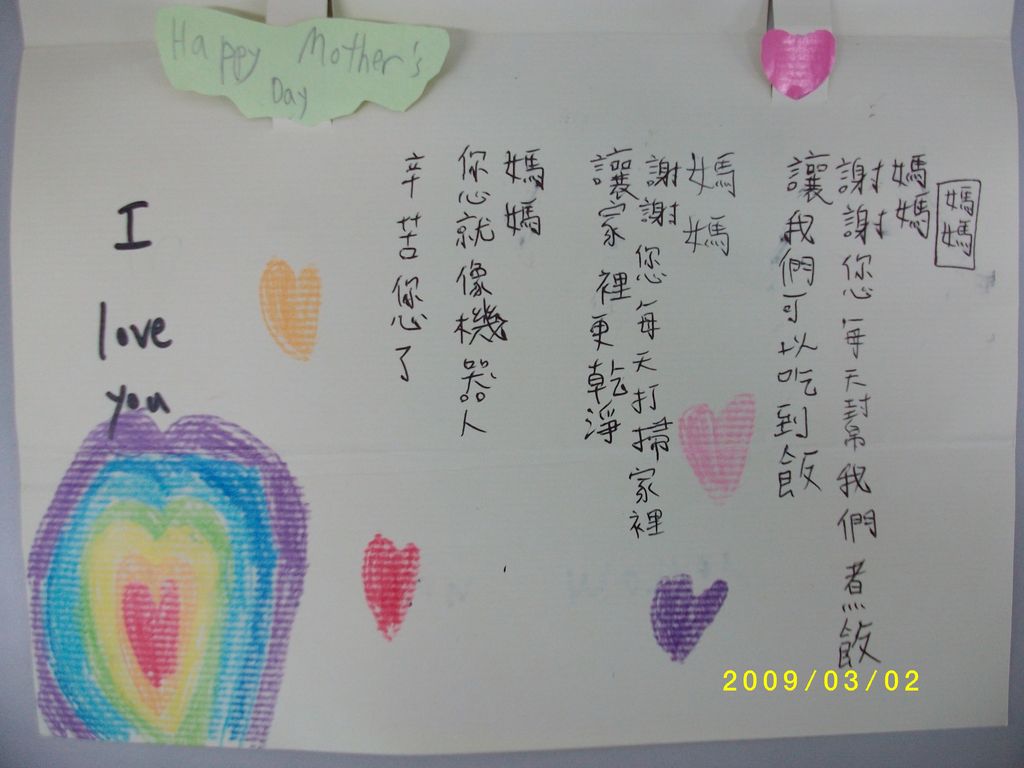 Happy Mother's
Day
媽媽
媽媽
謝謝您每天幫我們煮飯
讓我們可以吃到飯
媽媽
謝謝您每天打掃家裡
讓家裡更乾淨
媽媽
您就像機器人
辛苦您了
I
love
you
2009/03/02